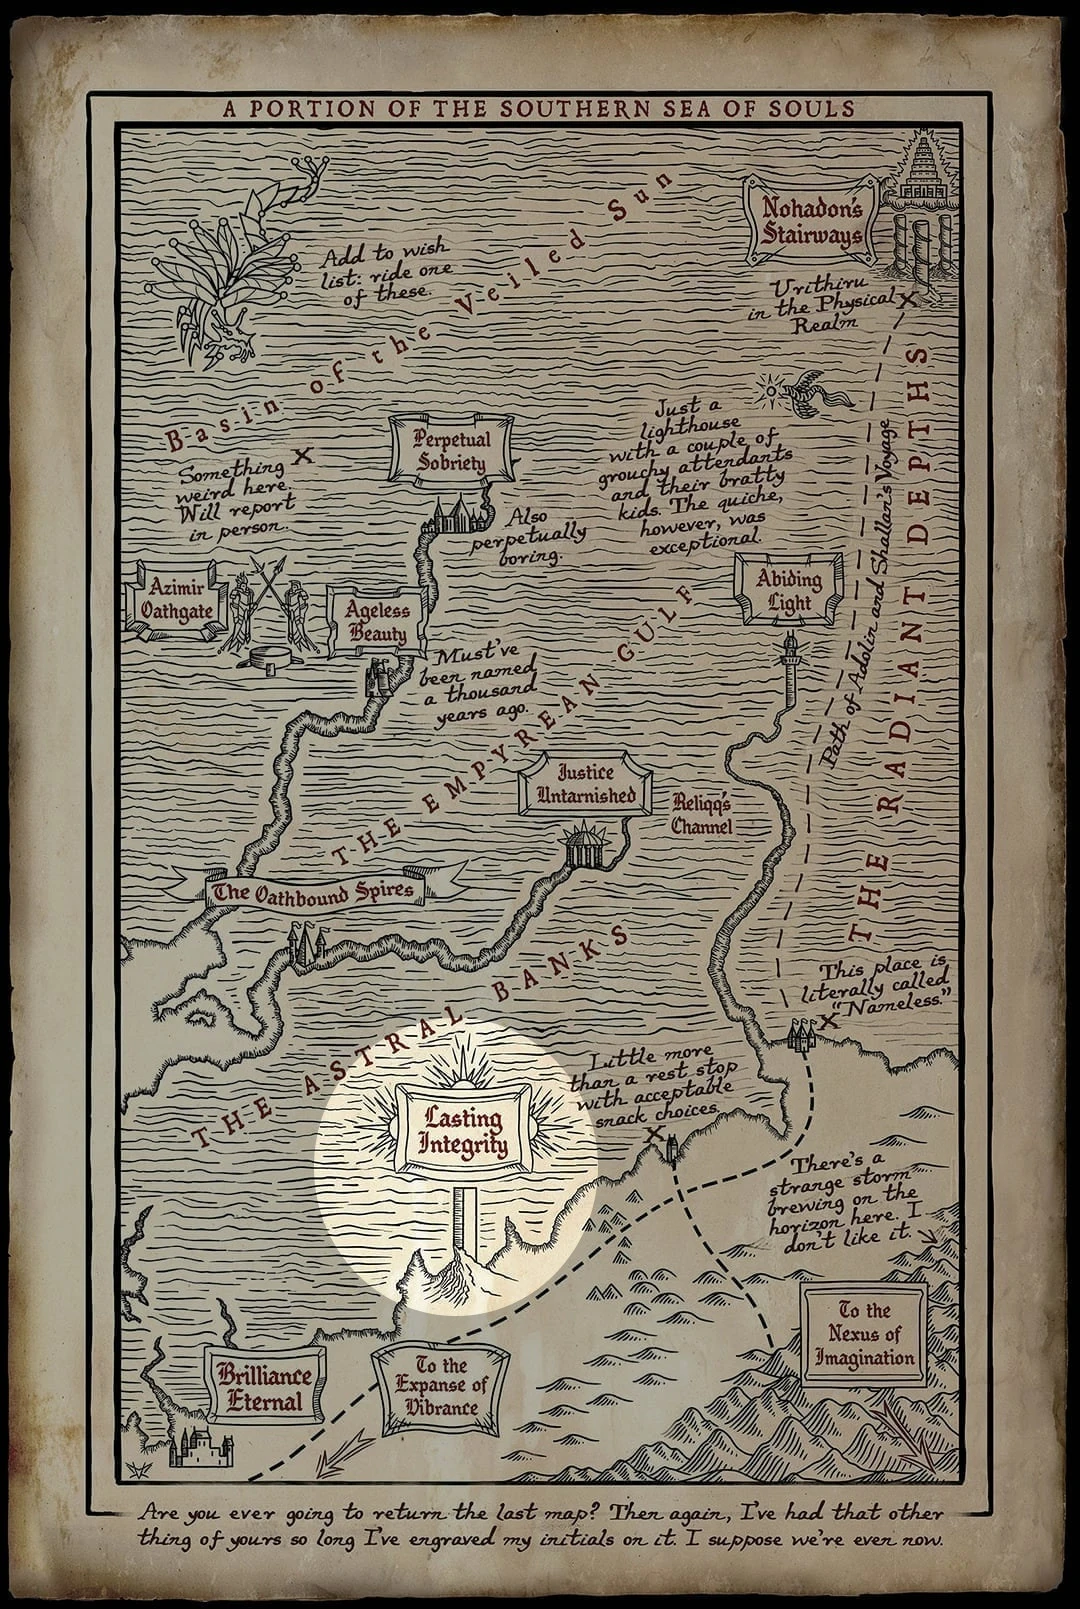 A PORTION OF THE SOUTHERN SEA OF SOULS
Nohadon's
Stairways
Add to wish
list: ride one
of these.
Basin of the Veiled Sun
Urithiru
in the Physical
Realm
Just a
lighthouse
with a couple of
grouchy attendants
and their bratty
kids. The quiche,
however, was
exceptional.
Perpetual
Sobriety
Something
weird here.
Will report
in person.
Also
perpetually
boring.
Azimir
Oathgate
Ageless
Beauty
Abiding
Light
Must've
been named
a thousand
years ago.
THE EMPYREAN GULF
Path of Adolin and Shallan's Voyage
THE RADIANT DEPTHS
Justice
Untarnished
Reliqq's
Channel
The Oathbound Spires
THE ASTRAL BANKS
This place is
literally called
"Nameless."
Little more
than a rest stop
with acceptable
snack choices.
Lasting
Integrity
There's a
strange storm
brewing on the
horizon here. I
don't like it.
To the
Nexus of
Imagination
Brilliance
Eternal
To the
Expanse of
Vibrance
Are you ever going to return the last map? Then again, I've had that other
thing of yours so long I've engraved my initials on it. I suppose we're even now.